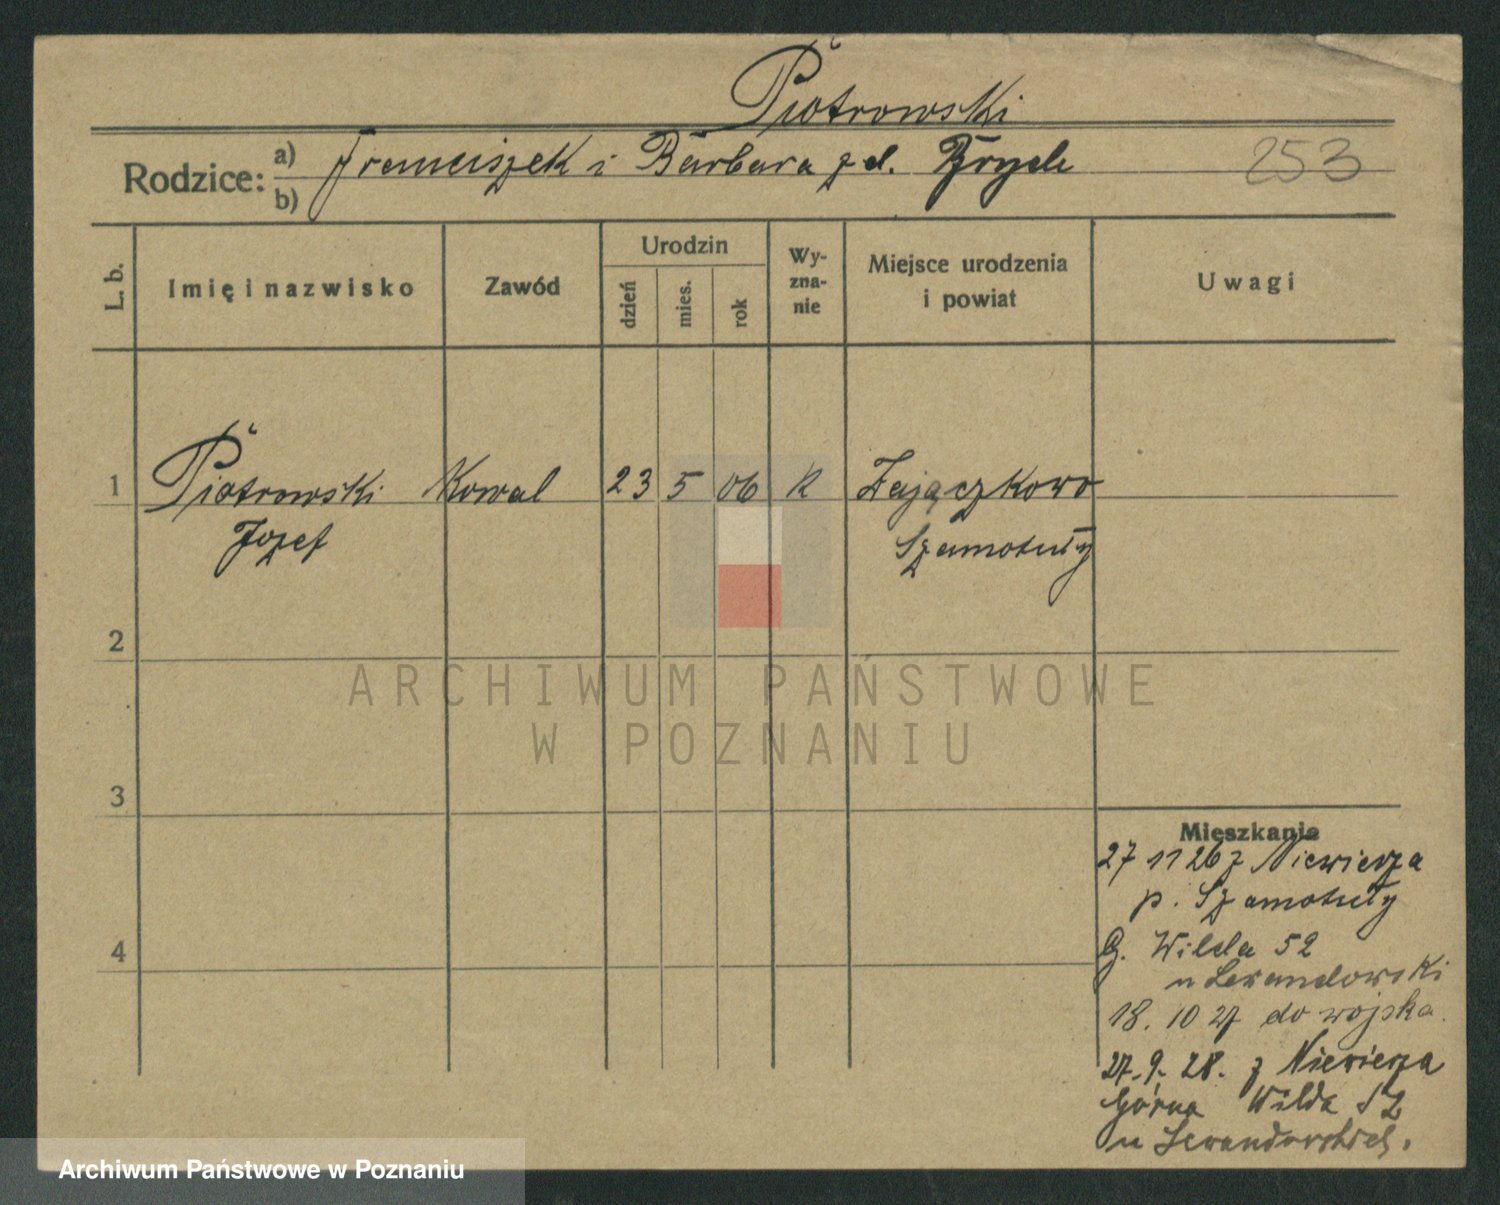 Piotrowski
Rodzice: a) Franciszek i Barbara z d. Brych
b)
253
L. b.
Imię i nazwisko
Zawód
Urodzin
dzień
mies.
rok
Wy-
zna-
nie
Miejsce urodzenia
i powiat
Uwagi
1 Piotrowski Kowal 23 5 06 R Zajączkowo
Jozef Szamotuły
2
ARCHIWUM PAŃSTWOWE
W POZNANIU
3
Mieszkanie
27 11 26 z Niewierza
p. Szamotuły
4
G. Wilda 52
u Lewandowski
18. 10 27 do wojska.
27. 9. 28. z Niewierza
Górna Wilda 52
u Lewandowskiej.
Archiwum Państwowe w Poznaniu